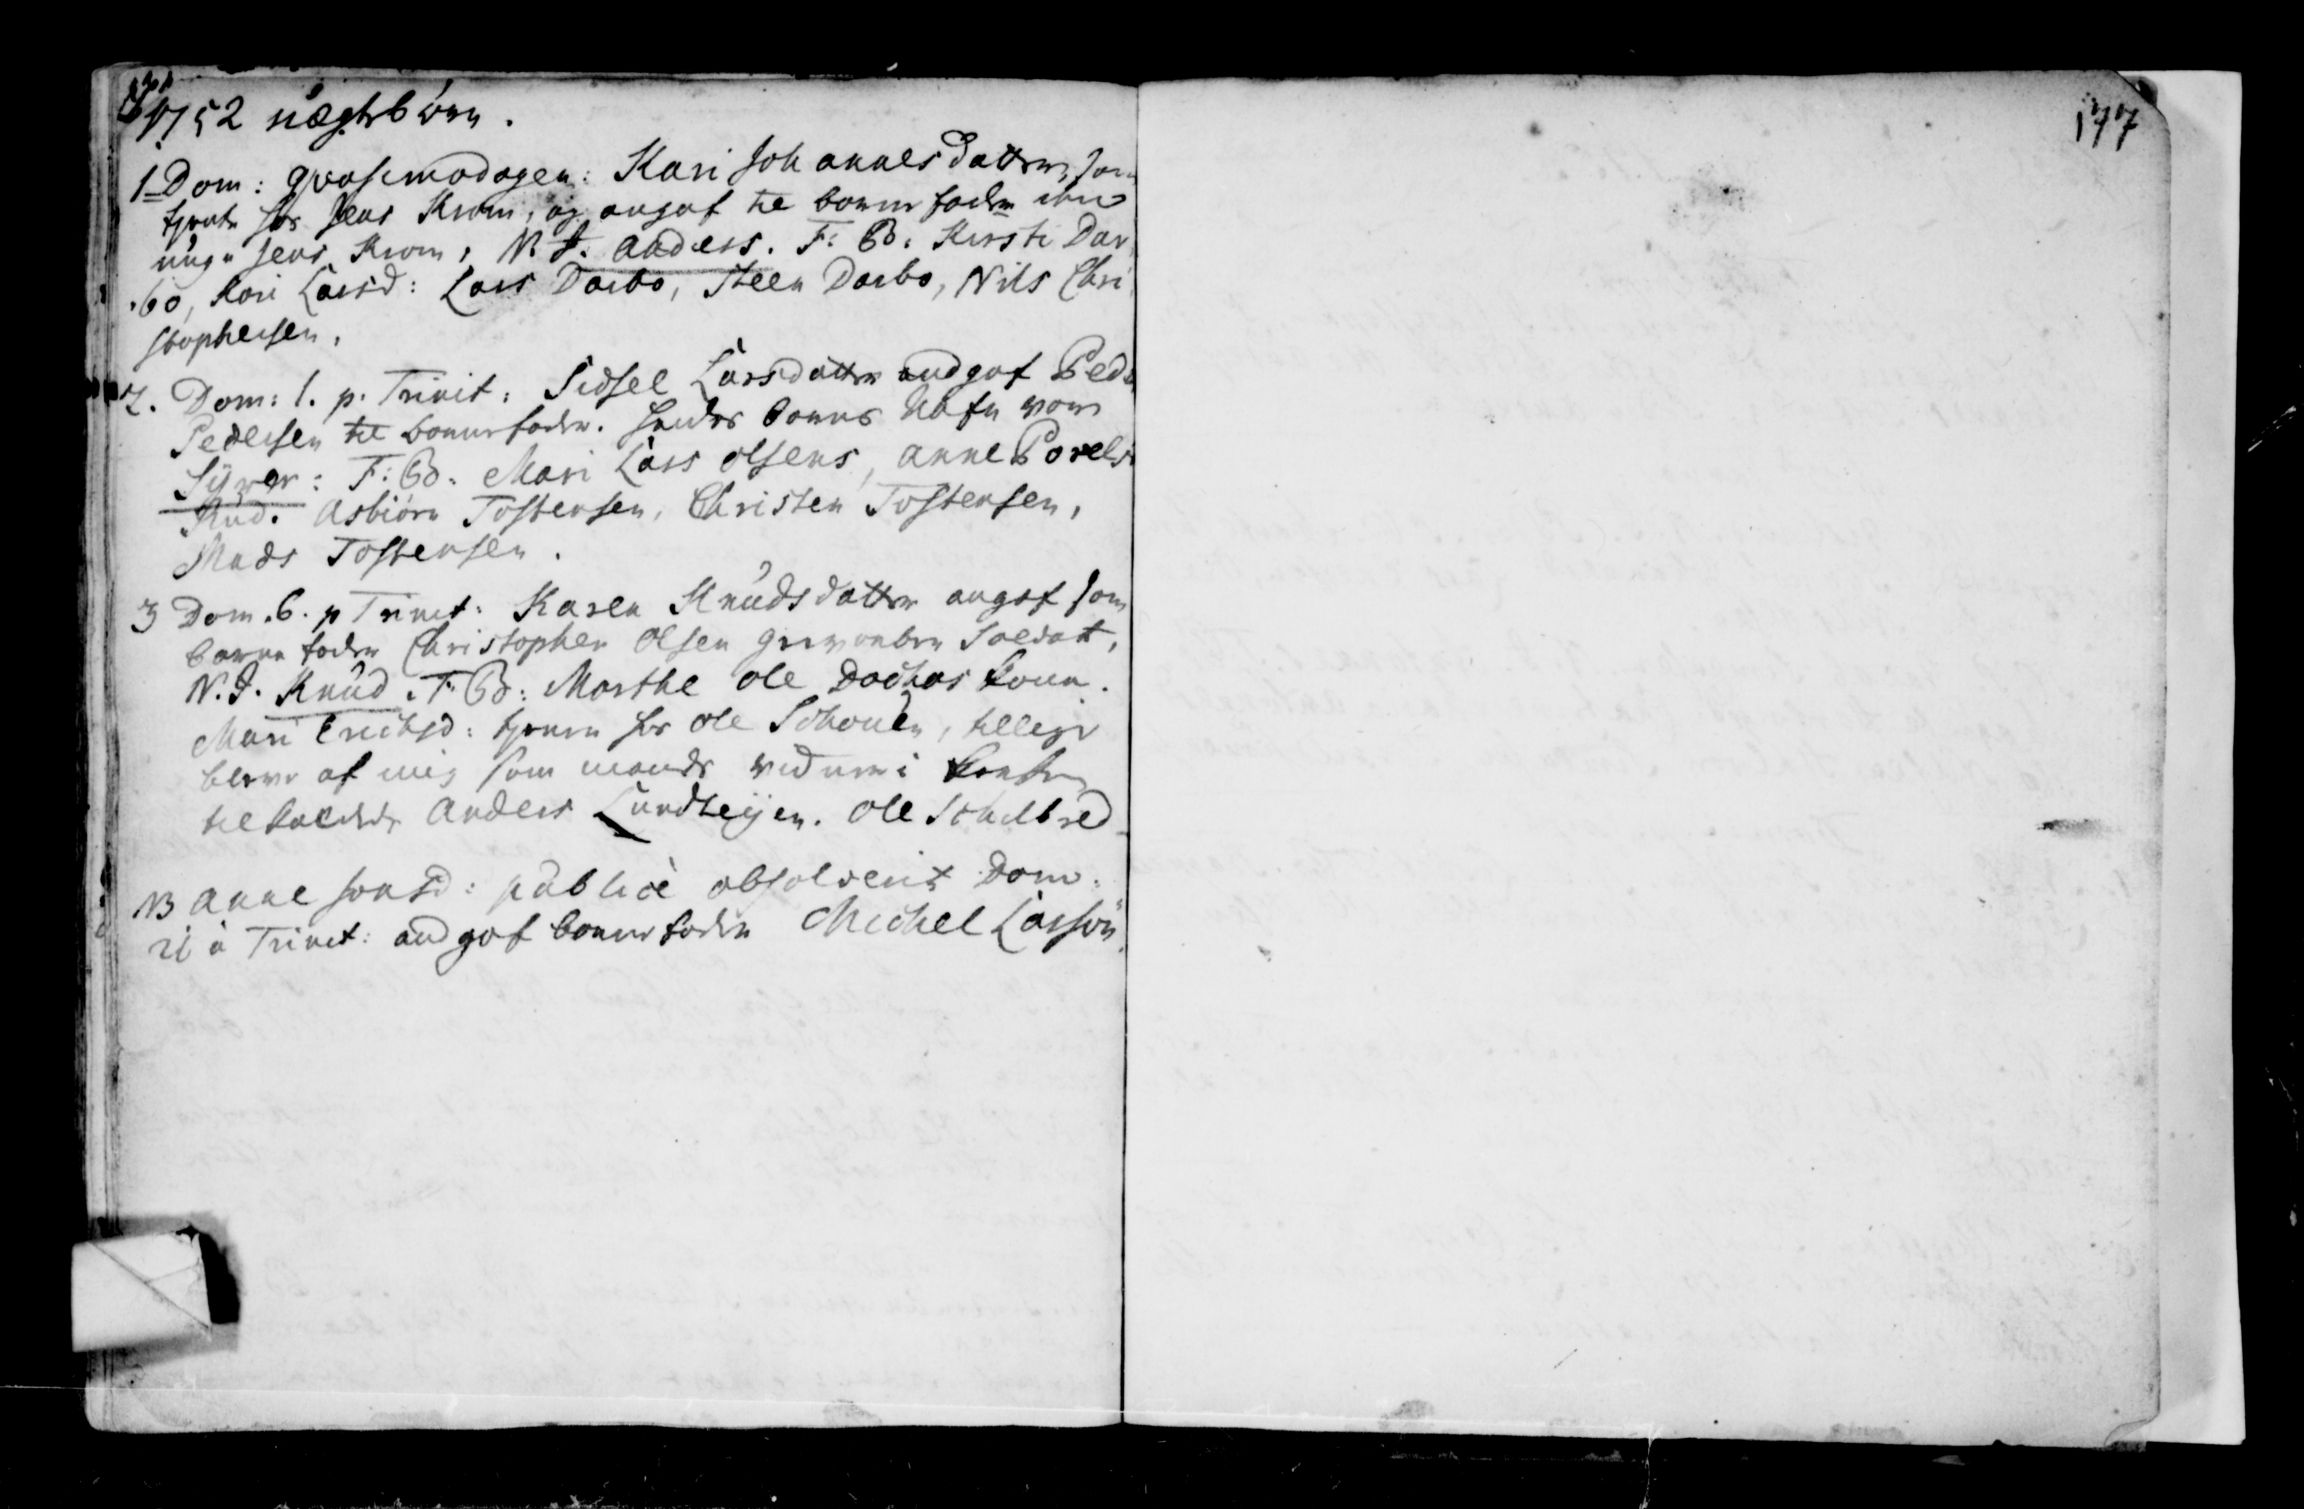 1752 uægtebörn.
177
1 Dom: qvasimodogen: Kari Johannesdatter, som
tjente hos Jens Krom, og angaf til barne fader
unge Jens Krom, N. J. Anders. F: B: Kirsti Dar
bo, Kari Larsd: Lars Darbo, Steen Darbo, Nils Chri
stophersen.
2. Dom: 1. p. Trinit: Sidsel Larsdatter andgaf Peder
Pedersen til barnefader. hendes barns Nafn var
Syver: F: B: Mari Lars Olsens, Anne Povels
Rud. Asbiörn Tostensen, Christen Tostensen,
Mads Tostensen.
3 Dom. 6. p Trinit: Karen Knudsdatter angaf som
barne fader Christopher Olsen gevorben Soldat,
N. J. Knud. F: B: Marthe Ole kone.
Mari Erichsd: tjener hos Ole Schouen, tillige
bleve af mig som mands vidner i
Anders Lundteijen. Ole
NB Anne Jonsd: publicè absolverit Dom:
21 à Trinit: andgaf barnefader Michel Larsön.